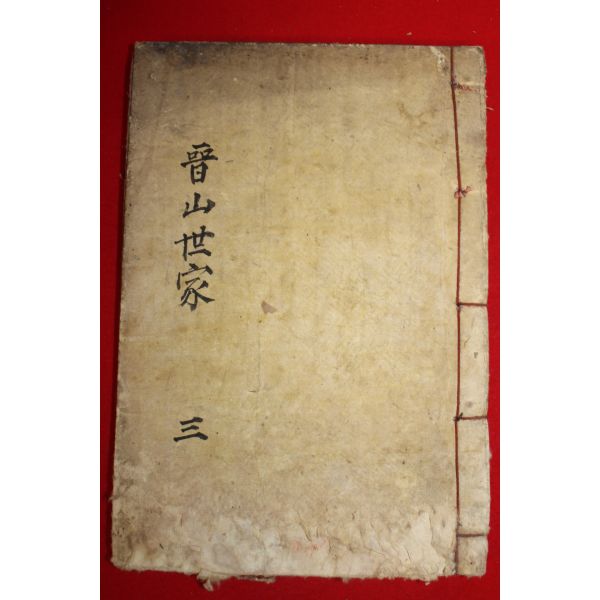 晉山世家
三